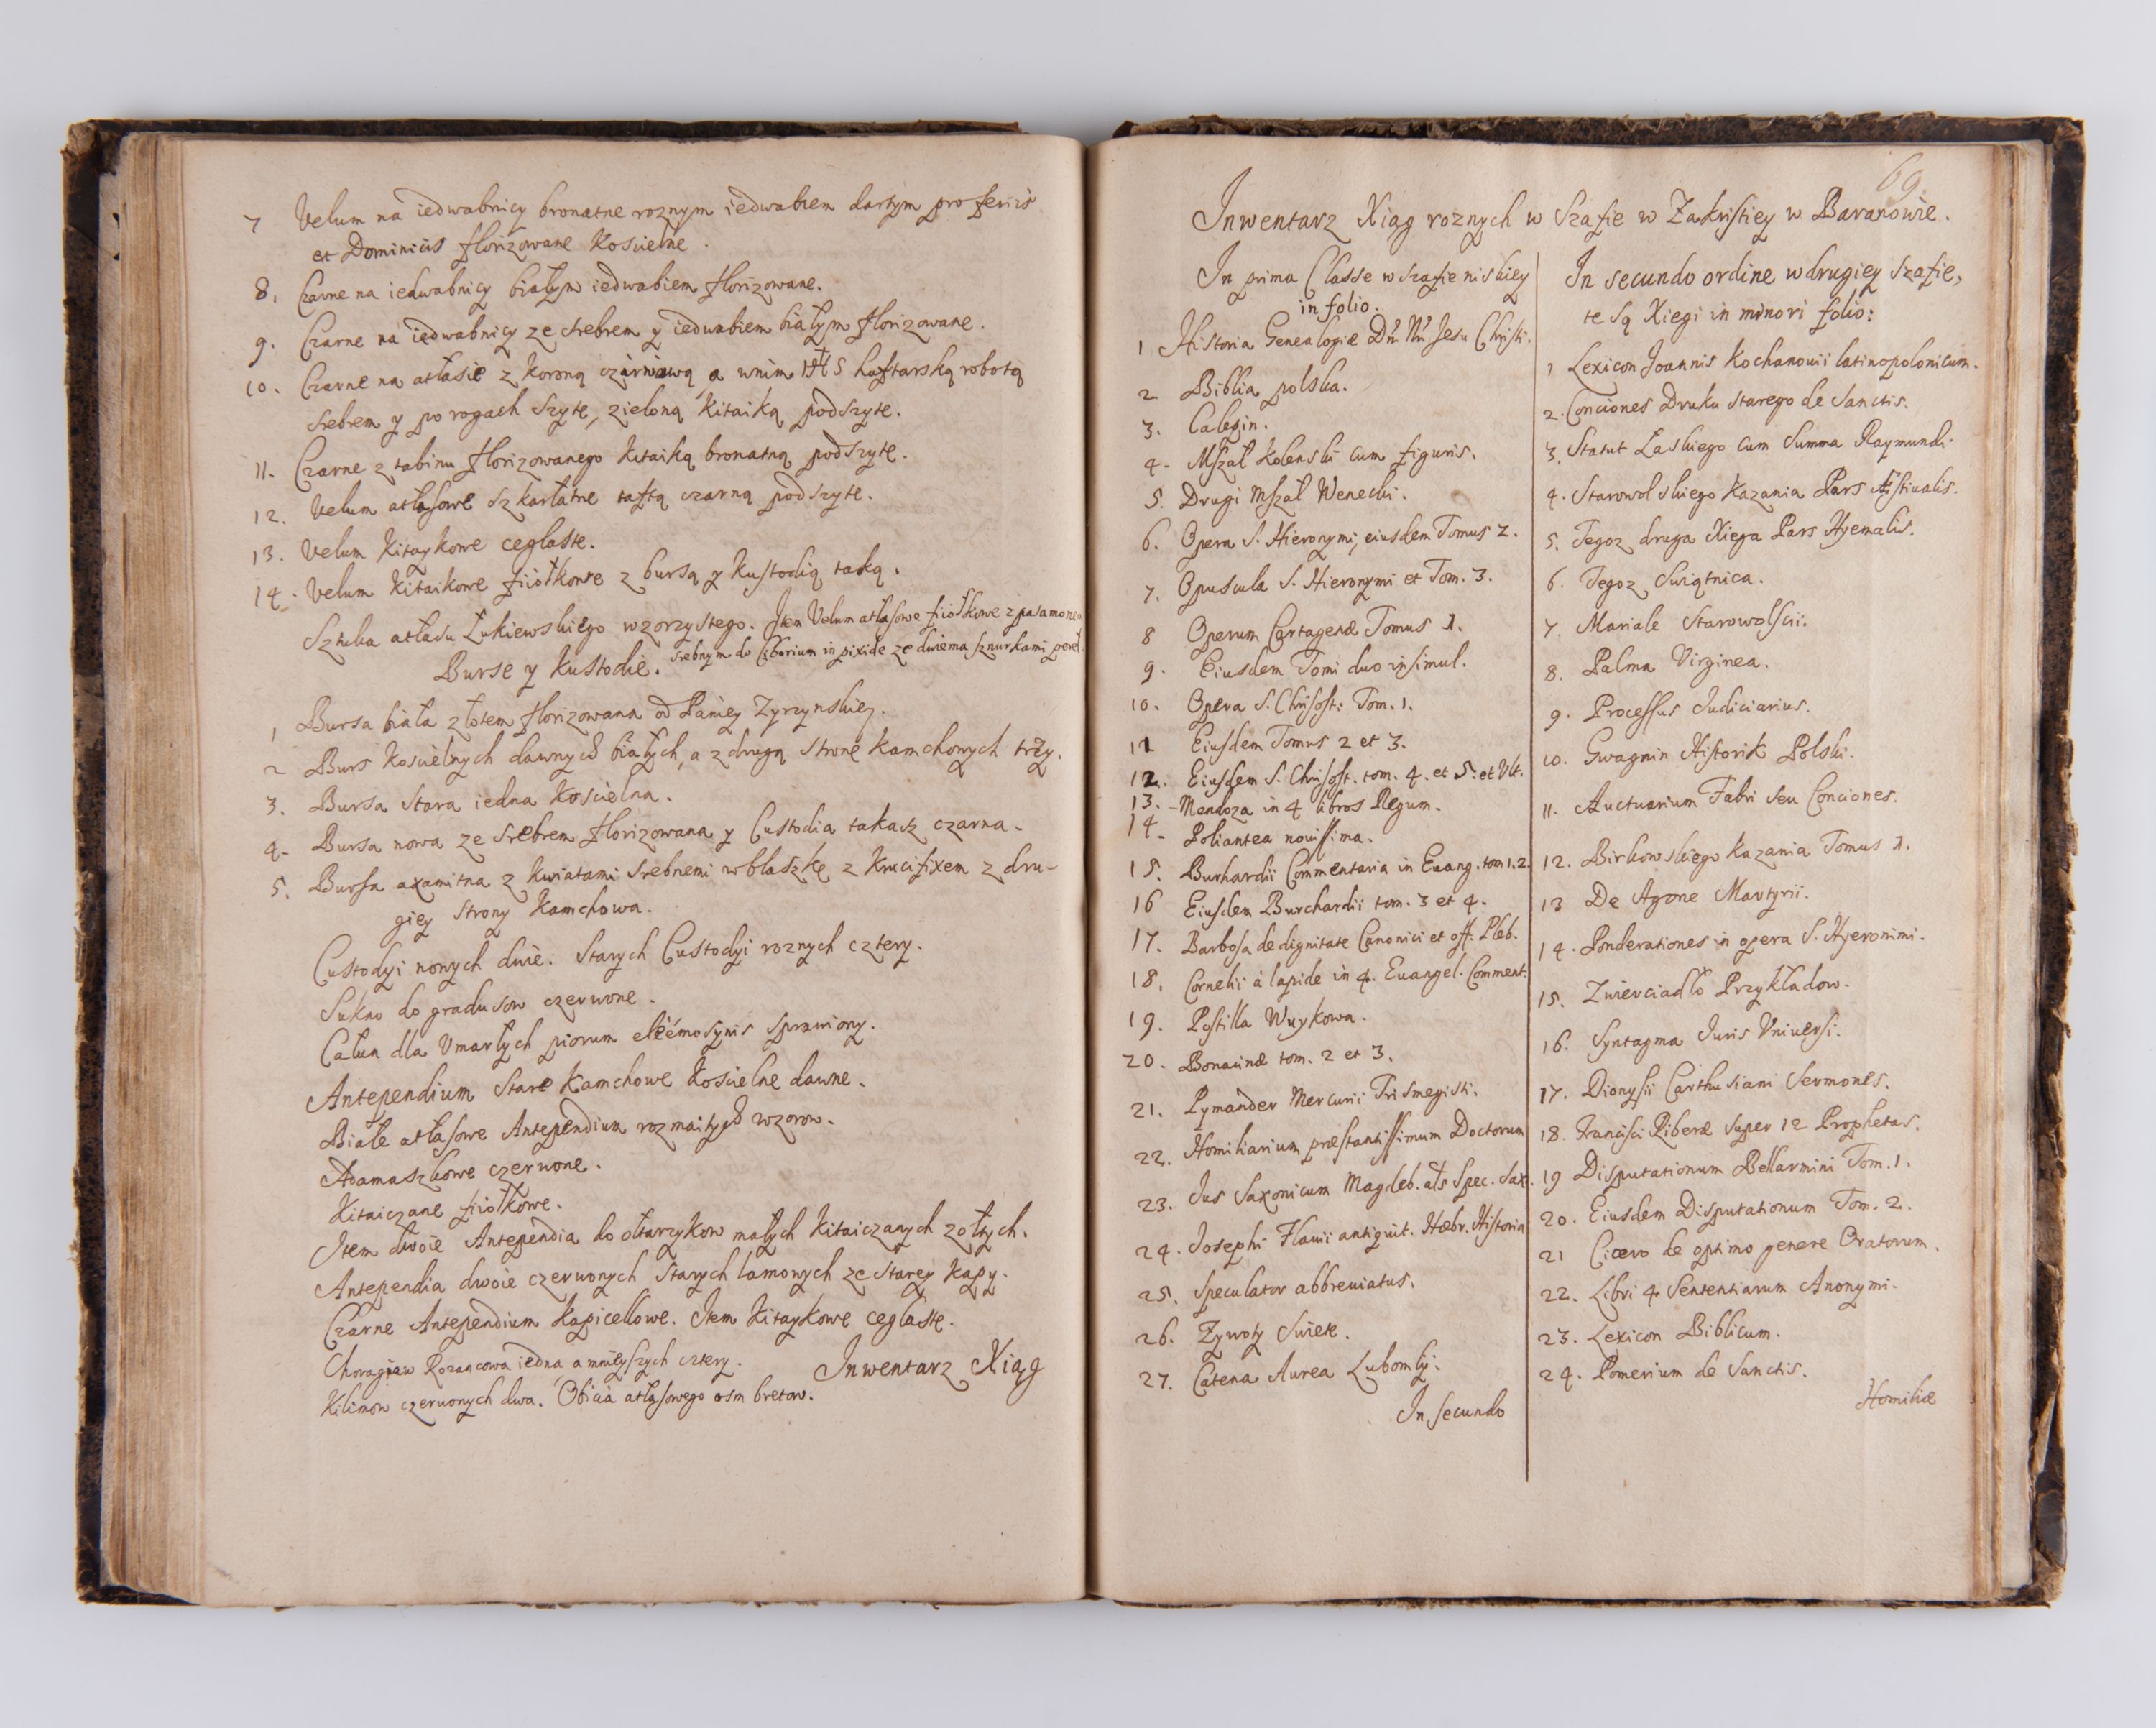 7 Velum na iedwabnicy bronatne roznym iedwabiem dartym pro feriis
et Dominicis florizowane Koscielne.
8. Czarne na iedwabnicy białym iedwabiem florizowane.
9. Czarne na iedwabnicy ze srebrem y iedwabiem białym florizowane.
10. Czarne na atłasie z koroną a wnim IHS haftarską robotą
srebrem y po rogach szyte, zieloną Kitaiką podszyte.
11. Czarne z tabinu florizowanego Kitaiką bronatną podszyte.
12. Velum atłasowe szkarłatne taftą czarną podszyte.
13. Velum Kitaykowe ceglaste.
14. Velum Kitaikowe fiiołkowe z bursą y Kustodią taką.
Sztuka atłasu Żukiewskiego wzorzystego. Item Velum atłasowe fiiołkowe z pasamonem
Burse y Kustodie. srebnym do Ciborium in pixide ze dwiema sznurkami pereł.
1 Bursa biała złotem florizowana od Paniey Zyrzynskiej.
2 Burs Koscielnych dawnych białych, a z drugą stronę Kamchowych trzy.
3. Bursa stara iedna Koscielna.
4. Bursa nowa ze srebrem florizowana y Custodia takasz czarna.
5. Bursa axamitna z kwiatami srebnemi w blaszkę z Krucifixem z dru-
giey strony Kamchowa.
Custodyi nowych dwie. Starych Custodyi roznych cztery.
Sukno do gradusow czerwone.
Całun dla Vmarłych piorum eleemosynis sprawiony.
Antependium Stare Kamchowe Koscielne dawne.
Białe atłasowe Antependium rozmaitych wzorow.
Adamaszkowe czerwone.
Kitaiczane fiiołkowe.
Item dwoie Antependia do ołtarzykow małych Kitaiczanych zołtych.
Antependia dwoie czerwonych starych lamowych ze starey Kapy.
Czarne Antependium Kapicellowe. Item Kitaykowe ceglaste.
Choragiew Rozancowa iedna, a mnieyszych cztery. Inwentarz Xiąg
Kilimow czerwonych dwa. Obicia atłasowego osm bretow.
69.
Inwentarz Xiąg roznych w Szafie w Zakristiey w Baranowie.
In prima Classe w szafie niskiey
in folio.
1 Historia Genealogiæ Dni Nri Jesu Christi.
2 Biblia polska.
3. Calepin.
4. Mszał Kolenski cum figuris.
5. Drugi Mszał Wenecki.
6. Opera S. Hieronymi, eiusdem Tomus 2.
7. Opuscula S. Hieronymi et Tom. 3.
8 Operum Cartagenæ Tomus 1.
9. Eiusdem Tomi duo insimul.
10. Opera S. Chrisost: Tom. 1.
11 Eiusdem Tomus 2 et 3.
12. Eiusdem S. Chrisost. tom. 4. et 5. et Vlt.
13. Mendoza in 4 libros Regum.
14. Poliantea nouissima.
15. Burhardii Commentaria in Euang. tom 1. 2.
16 Eiusdem Burchardii tom. 3 et 4.
17. Barbosa de dignitate Canonici et off. Pleb.
18. Cornelii à lapide in 4. Euangel. Comment.
19. Postilla Wuykowa.
20. Bonacinæ tom. 2 et 3.
21. Pymander Mercurii Trismegisti.
22. Homiliarium præstantissimum Doctorum
23. Jus Saxonicum Magdeb. als Spec. Sax.
24. Josephi Flauii antiquit. Hæbr. Historia
25. Speculator abbreuiatus.
26. Zywoty Swięte.
27. Catena Aurea Lubomly.
In secundo
In secundo ordine w drugiey szafie,
te są Xiegi in minori folio:
1 Lexicon Joannis Kochanouii latinopolonicum.
2. Conciones Druku starego de Sanctis.
3. Statut Laskiego cum Summa Raymundi.
4. Starowolskiego Kazania Pars Æstiualis.
5. Tegoz druga Xiega Pars Hyemalis.
6. Tegoz Swiątnica.
7. Mariale Starowolscii.
8. Palma Virginea.
9. Processus Judiciarius.
10. Gwagnin Historik Polski.
11. Auctuarium Fabri seu Conciones.
12. Birkowskiego Kazania Tomus 1.
13 De Agone Martyrii.
14. Ponderationes in opera S. Hyeronimi.
15. Zwierciadło Przykładow.
16. Syntagma Juris Vniuersi.
17. Dionysii Carthusiani Sermones.
18. Francisci Riberæ super 12 Prophetas.
19 Disputationum Bellarmini Tom. 1.
20. Eiusdem Disputationum Tom. 2.
21 Cicero de optimo genere Oratorum.
22. Libri 4 Sententiarum Anonymi.
23. Lexicon Biblicum.
24. Pomerium de Sanctis.
Homiliæ